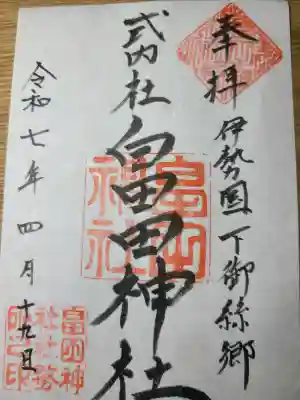 奉拝 伊勢國下御絲郷
式内社 畠田神社
令和七年 四月 十九日
畠田
神社
畠田神
社社務
所之印